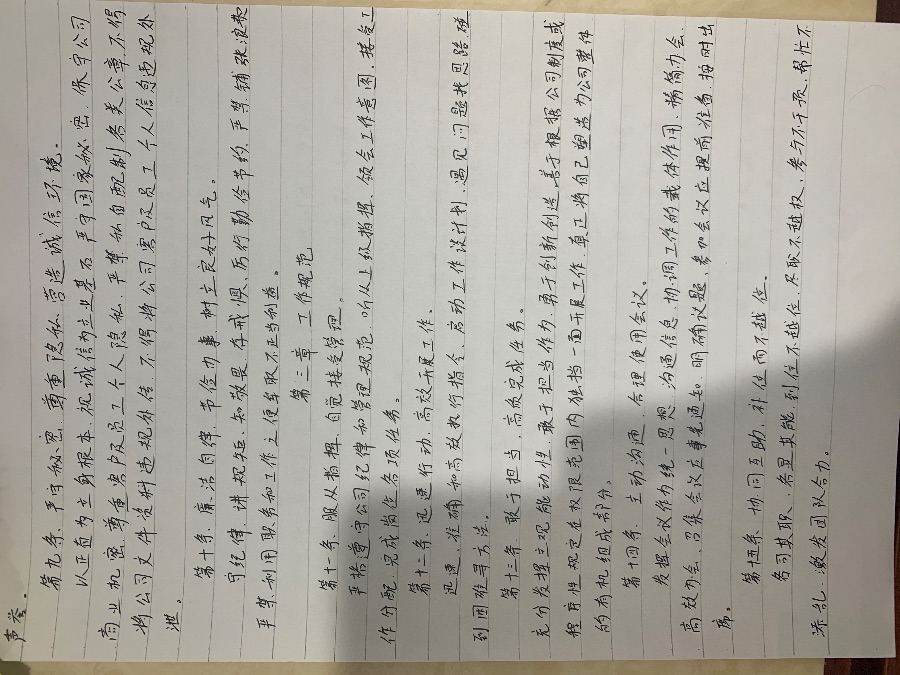 声誉。
第九条、严守秘密、尊重隐私、营造诚信环境。
以正直为立身根本、视诚信为立业基石、严守国家秘密、保守公司
商业机密、尊重客户及员工个人隐私、严禁私自配制各类公章、不得
将公司文件资料违规外传、不得将公司客户及员工个人信息违规外
泄。
第十条、廉洁自律、节俭办事、树立良好风气。
守纪律、讲规矩、知敬畏、存戒惧、厉行勤俭节约、严禁铺张浪费
严禁利用职务和工作之便牟取不正当利益。
第三章 工作规范
第十一条、服从指挥、自觉接受管理。
严格遵守公司纪律和管理规范、听从上级指挥、领会工作意图、接受工
作分配、完成岗位各项任务。
第十二条、迅速行动、高效开展工作。
迅速、准确和高效执行指令、启动工作设计划、遇见问题找思路、碰
到困难寻方法。
第十三条、敢于担当、高质完成任务。
充分发挥主观能动性、敢于担当作为、勇于创新创造、善于根据公司制度或
程序性规定在权限范围内独挡一面开展工作、真正将自己塑造为公司整体
的有机组成部分。
第十四条、主动沟通、合理使用会议。
发挥会议作为统一思想、沟通信息、协调工作的载体作用、精简办会、
高效办会、召集会议应事先通知、明确议题、参加会议应提前准备、按时出
席。
第十五条、协同互助、补位而不越位。
各司其职、各显其能、到位不越位、尽职不越权、参与不干预、帮忙不
添乱、激发团队合力。